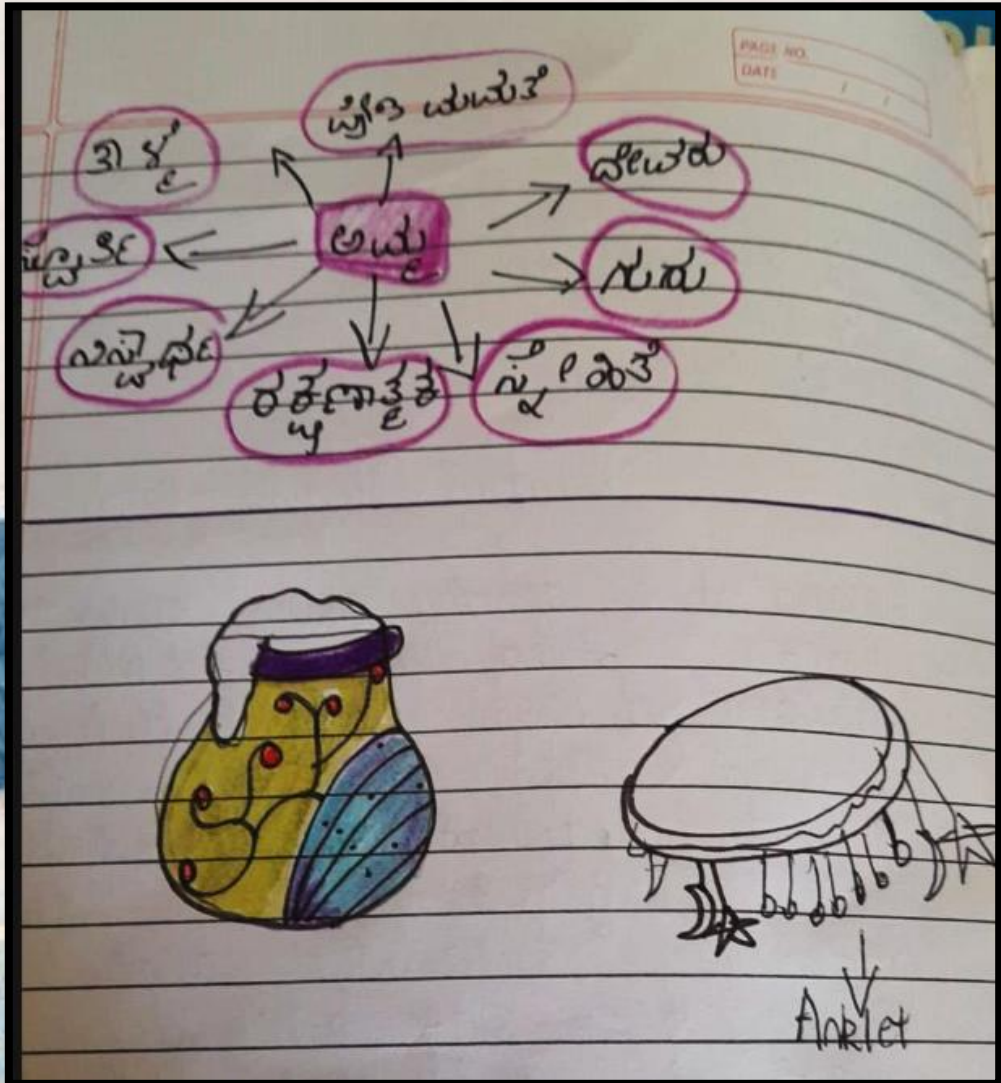 PAGE NO.
DATE / /
ಪ್ರೀತಿ ಮಮತೆ
ತಾಳ್ಮೆ
ದೇವರು
ಅಮ್ಮ
ಗುರು
ರಕ್ಷಣಾತ್ಮಕ
ಸ್ನೇಹಿತೆ
Anklet